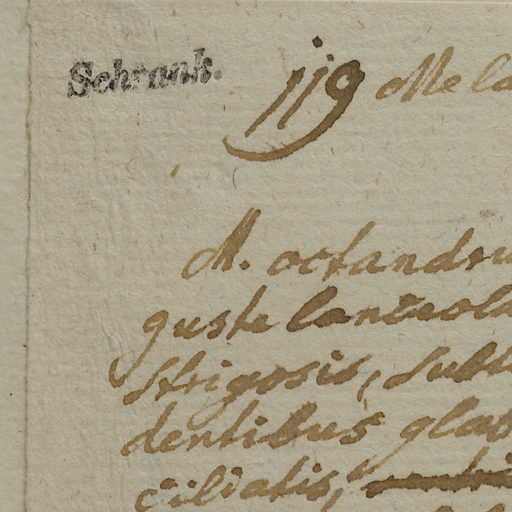 Schrank.
119 Mela
M. octandru
guste lanceola
strigosis, subt
dentibus glab
ciliatis,